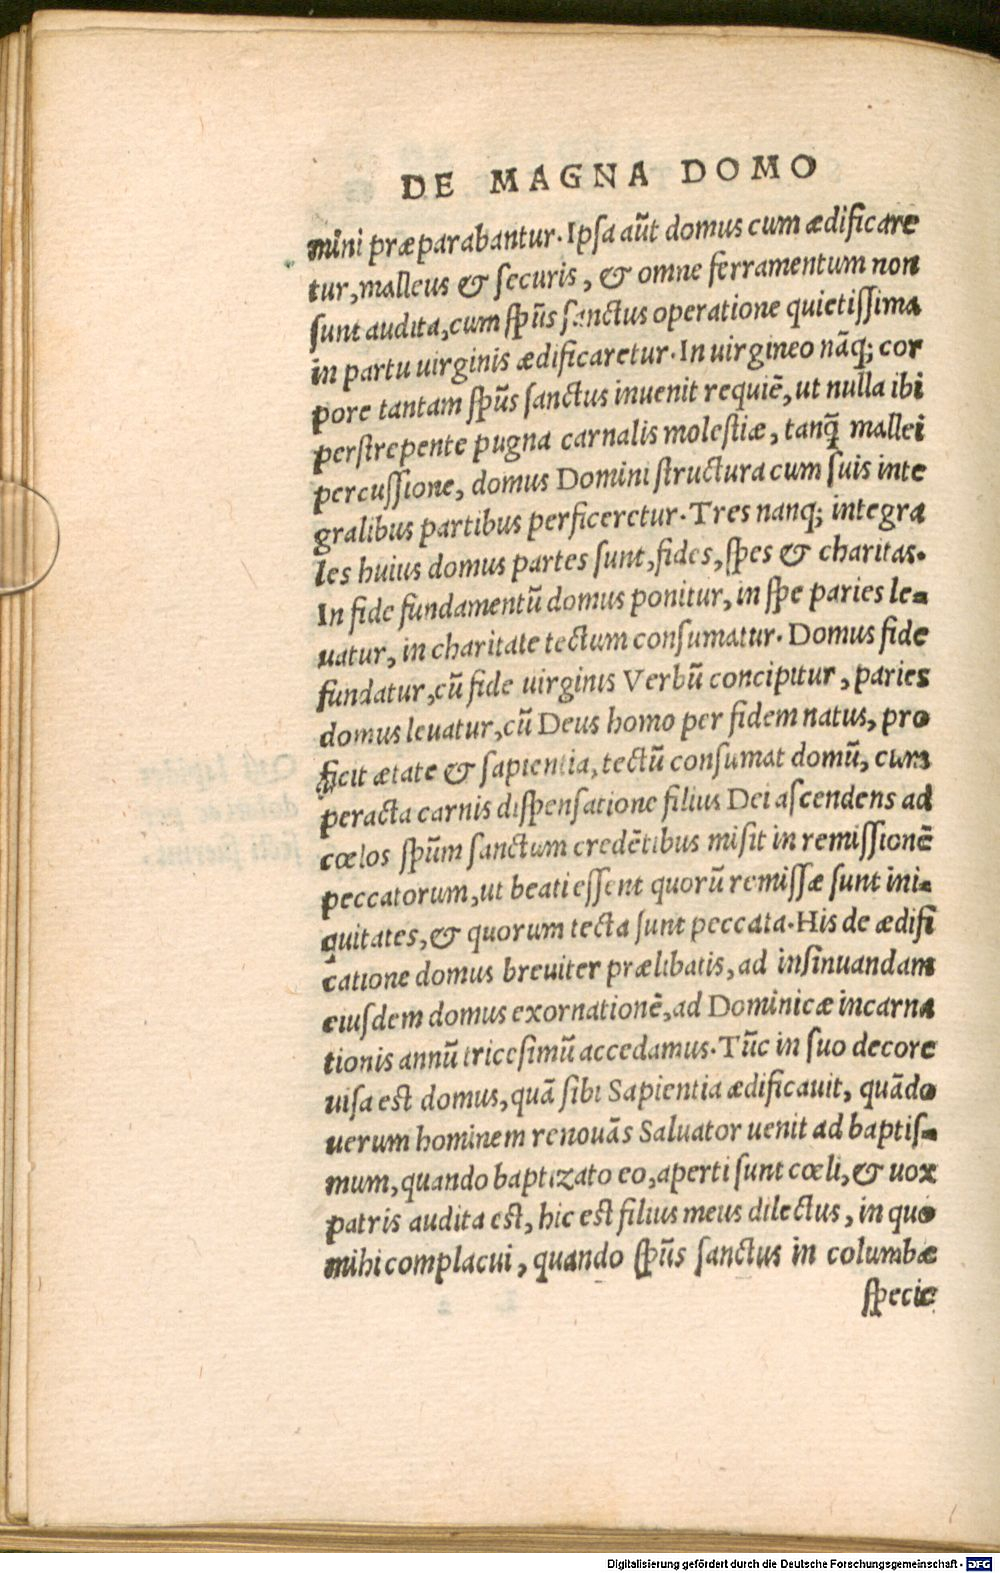 DE MAGNA DOMO
mini præparabantur. Ipsa aũt domus cum ædificare
tur, malleus & securis, & omne ferramentum non
sunt audita, cum spũs sanctus operatione quietissima
in partu uirginis ædificaretur. In uirgineo nãq; cor
pore tantam spũs sanctus inuenit requiẽ, ut nulla ibi
perstrepente pugna carnalis molestiæ, tanq̃ mallei
percussione, domus Domini structura cum suis inte
gralibus partibus perficeretur. Tres nanq; integra
les huius domus partes sunt, fides, spes & charitas.
In fide fundamentũ domus ponitur, in spe paries le-
uatur, in charitate tectum consumatur. Domus fide
fundatur, cũ fide uirginis Verbũ concipitur, paries
domus leuatur, cũ Deus homo per fidem natus, pro
ficit ætate & sapientia, tectũ consumat domũ, cum
peracta carnis dispensatione filius Dei ascendens ad
cœlos spũm sanctum credẽtibus misit in remissionẽ
peccatorum, ut beati essent quorũ remissæ sunt ini-
quitates, & quorum tecta sunt peccata. His de ædifi
catione domus breuiter prælibatis, ad insinuandam
eiusdem domus exornationẽ, ad Dominicæ incarna
tionis annũ tricesimũ accedamus. Tũc in suo decore
uisa est domus, quã sibi Sapientia ædificauit, quãdo
uerum hominem renouãs Saluator uenit ad baptis-
mum, quando baptizato eo, aperti sunt cœli, & uox
patris audita est, hic est filius meus dilectus, in quo
mihi complacui, quando spũs sanctus in columbæ
specie
Digitalisierung gefördert durch die Deutsche Forschungsgemeinschaft - DFG